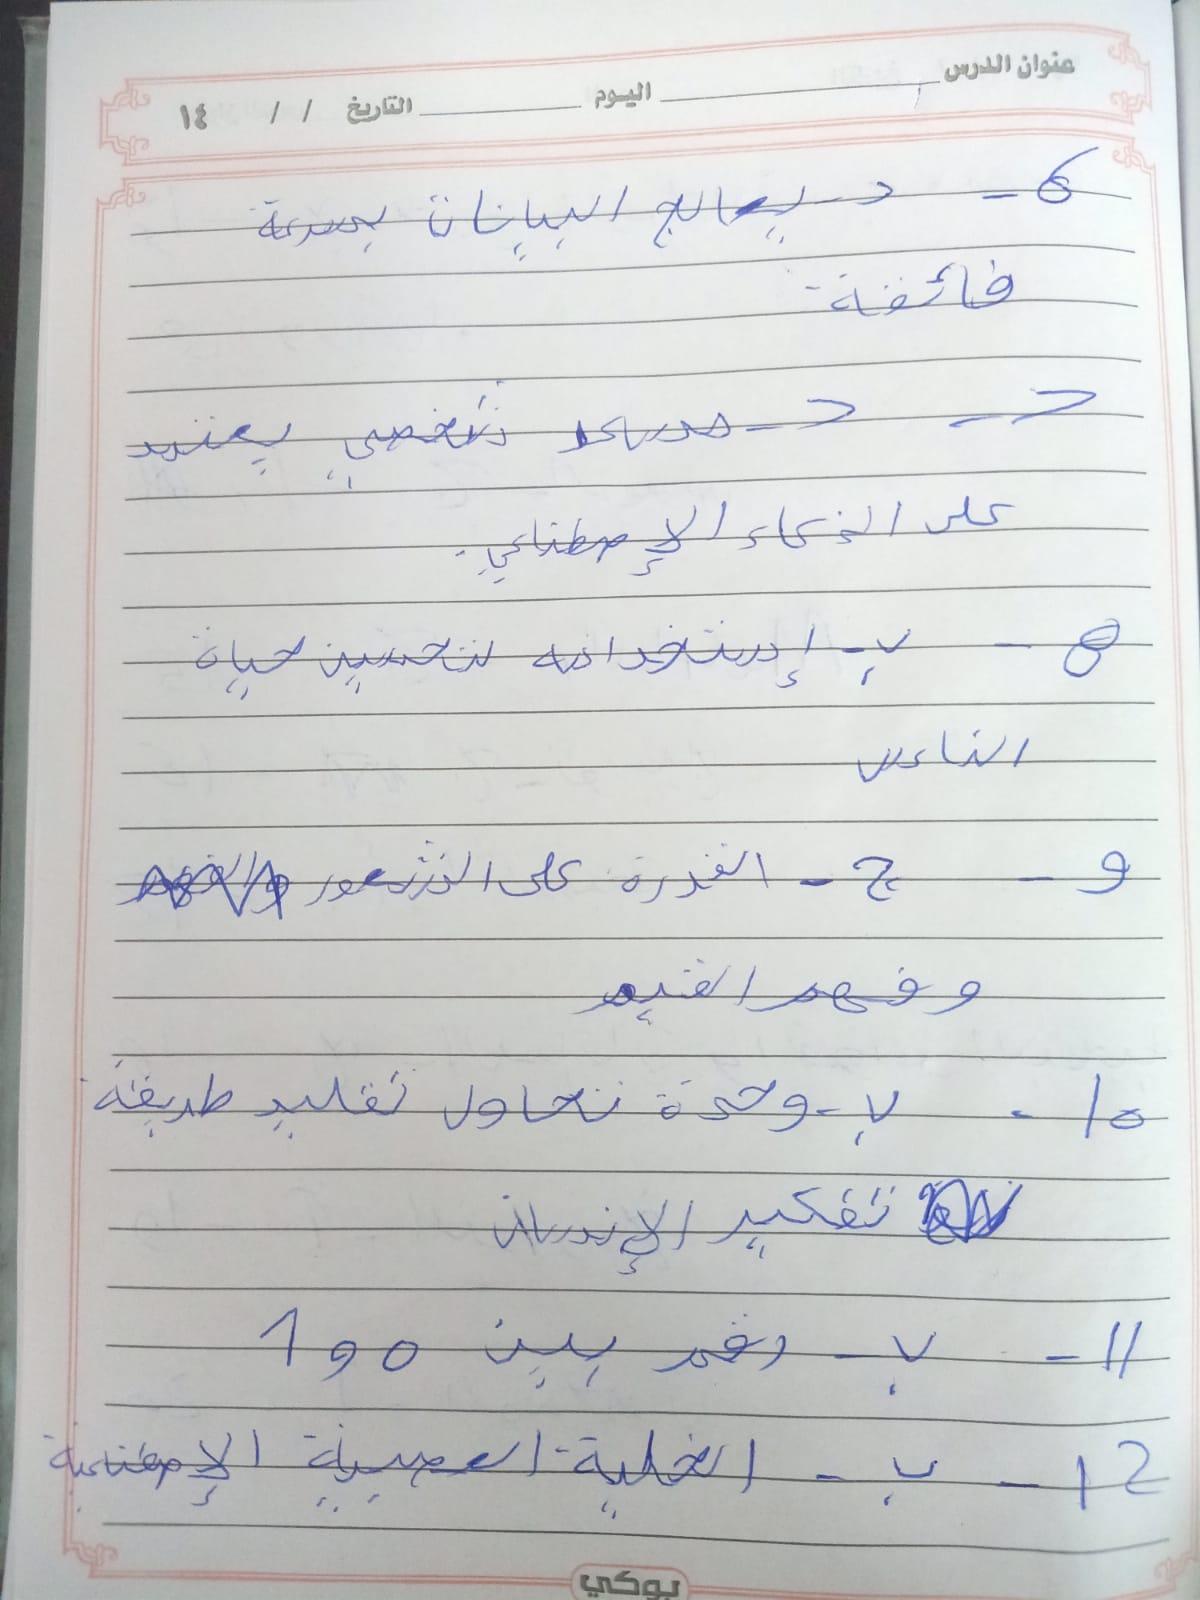 عنوان الدرس اليوم التاريخ / / ١٤
6 - د - يعالج البيانات بسرعة
فائقة
7 - د - مساعد شخصي يعتمد
على الذكاء الإصطناعي.
8 - ب - إستخدامه لتحسين حياة
الناس
9 - ج - القدرة على الشعور
وفهم القيم
10 - ب - وحدة تحاول تقليد طريقة
تفكير الإنسان
11 - ب - رقم بين 0 و 1
12 - ب - الخلية العصبية الإصطناعية
بوكي